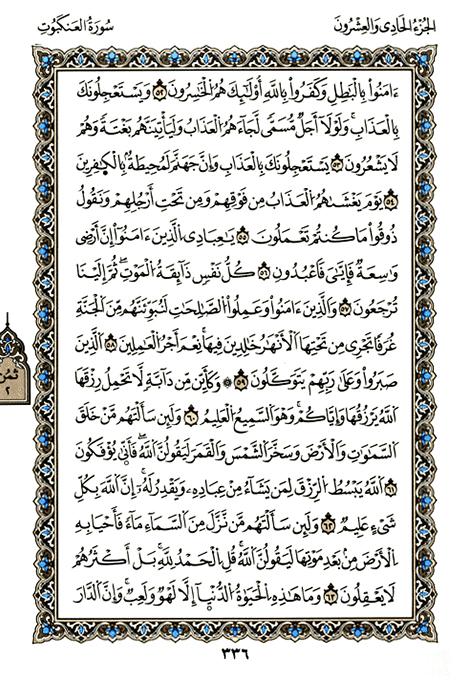 الجُزْءُ الحَادِي وَالعِشْرُونَ
سُورَةُ العَنكَبُوتِ
ءَامَنُواْ بِالْبَٰطِلِ وَكَفَرُواْ بِاللَّهِ أُوْلَٰٓئِكَ هُمُ الْخَٰسِرُونَ ٥٢ وَيَسْتَعْجِلُونَكَ
بِالْعَذَابِ وَلَوْلَآ أَجَلٌ مُّسَمًّى لَّجَآءَهُمُ الْعَذَابُ وَلَيَأْتِيَنَّهُم بَغْتَةً وَهُمْ
لَا يَشْعُرُونَ ٥٣ يَسْتَعْجِلُونَكَ بِالْعَذَابِ وَإِنَّ جَهَنَّمَ لَمُحِيطَةٌ بِالْكَٰفِرِينَ
٥٤ يَوْمَ يَغْشَىٰهُمُ الْعَذَابُ مِن فَوْقِهِمْ وَمِن تَحْتِ أَرْجُلِهِمْ وَنَقُولُ
ذُوقُواْ مَا كُنتُمْ تَعْمَلُونَ ٥٥ يَٰعِبَادِي الَّذِينَ ءَامَنُوٓاْ إِنَّ أَرْضِي
وَٰسِعَةٌ فَإِيَّٰيَ فَاعْبُدُونِ ٥٦ كُلُّ نَفْسٍ ذَآئِقَةُ الْمَوْتِ ثُمَّ إِلَيْنَا
تُرْجَعُونَ ٥٧ وَالَّذِينَ ءَامَنُواْ وَعَمِلُواْ الصَّٰلِحَٰتِ لَنُبَوِّئَنَّهُم مِّنَ الْجَنَّةِ
غُرَفًا تَجْرِي مِن تَحْتِهَا الْأَنْهَٰرُ خَٰلِدِينَ فِيهَا نِعْمَ أَجْرُ الْعَٰمِلِينَ ٥٨ الَّذِينَ
صَبَرُواْ وَعَلَىٰ رَبِّهِمْ يَتَوَكَّلُونَ ٥٩ ۞ وَكَأَيِّن مِّن دَآبَّةٍ لَّا تَحْمِلُ رِزْقَهَا
اللَّهُ يَرْزُقُهَا وَإِيَّاكُمْ وَهُوَ السَّمِيعُ الْعَلِيمُ ٦٠ وَلَئِن سَأَلْتَهُم مَّنْ خَلَقَ
السَّمَٰوَٰتِ وَالْأَرْضَ وَسَخَّرَ الشَّمْسَ وَالْقَمَرَ لَيَقُولُنَّ اللَّهُ فَأَنَّىٰ يُؤْفَكُونَ
٦١ اللَّهُ يَبْسُطُ الرِّزْقَ لِمَن يَشَآءُ مِنْ عِبَادِهِ وَيَقْدِرُ لَهُ إِنَّ اللَّهَ بِكُلِّ
شَيْءٍ عَلِيمٌ ٦٢ وَلَئِن سَأَلْتَهُم مَّن نَّزَّلَ مِنَ السَّمَآءِ مَآءً فَأَحْيَا بِهِ
الْأَرْضَ مِن بَعْدِ مَوْتِهَا لَيَقُولُنَّ اللَّهُ قُلِ الْحَمْدُ لِلَّهِ بَلْ أَكْثَرُهُمْ
لَا يَعْقِلُونَ ٦٣ وَمَا هَٰذِهِ الْحَيَوٰةُ الدُّنْيَآ إِلَّا لَهْوٌ وَلَعِبٌ وَإِنَّ الدَّارَ
ثمن
٢
٣٣٦